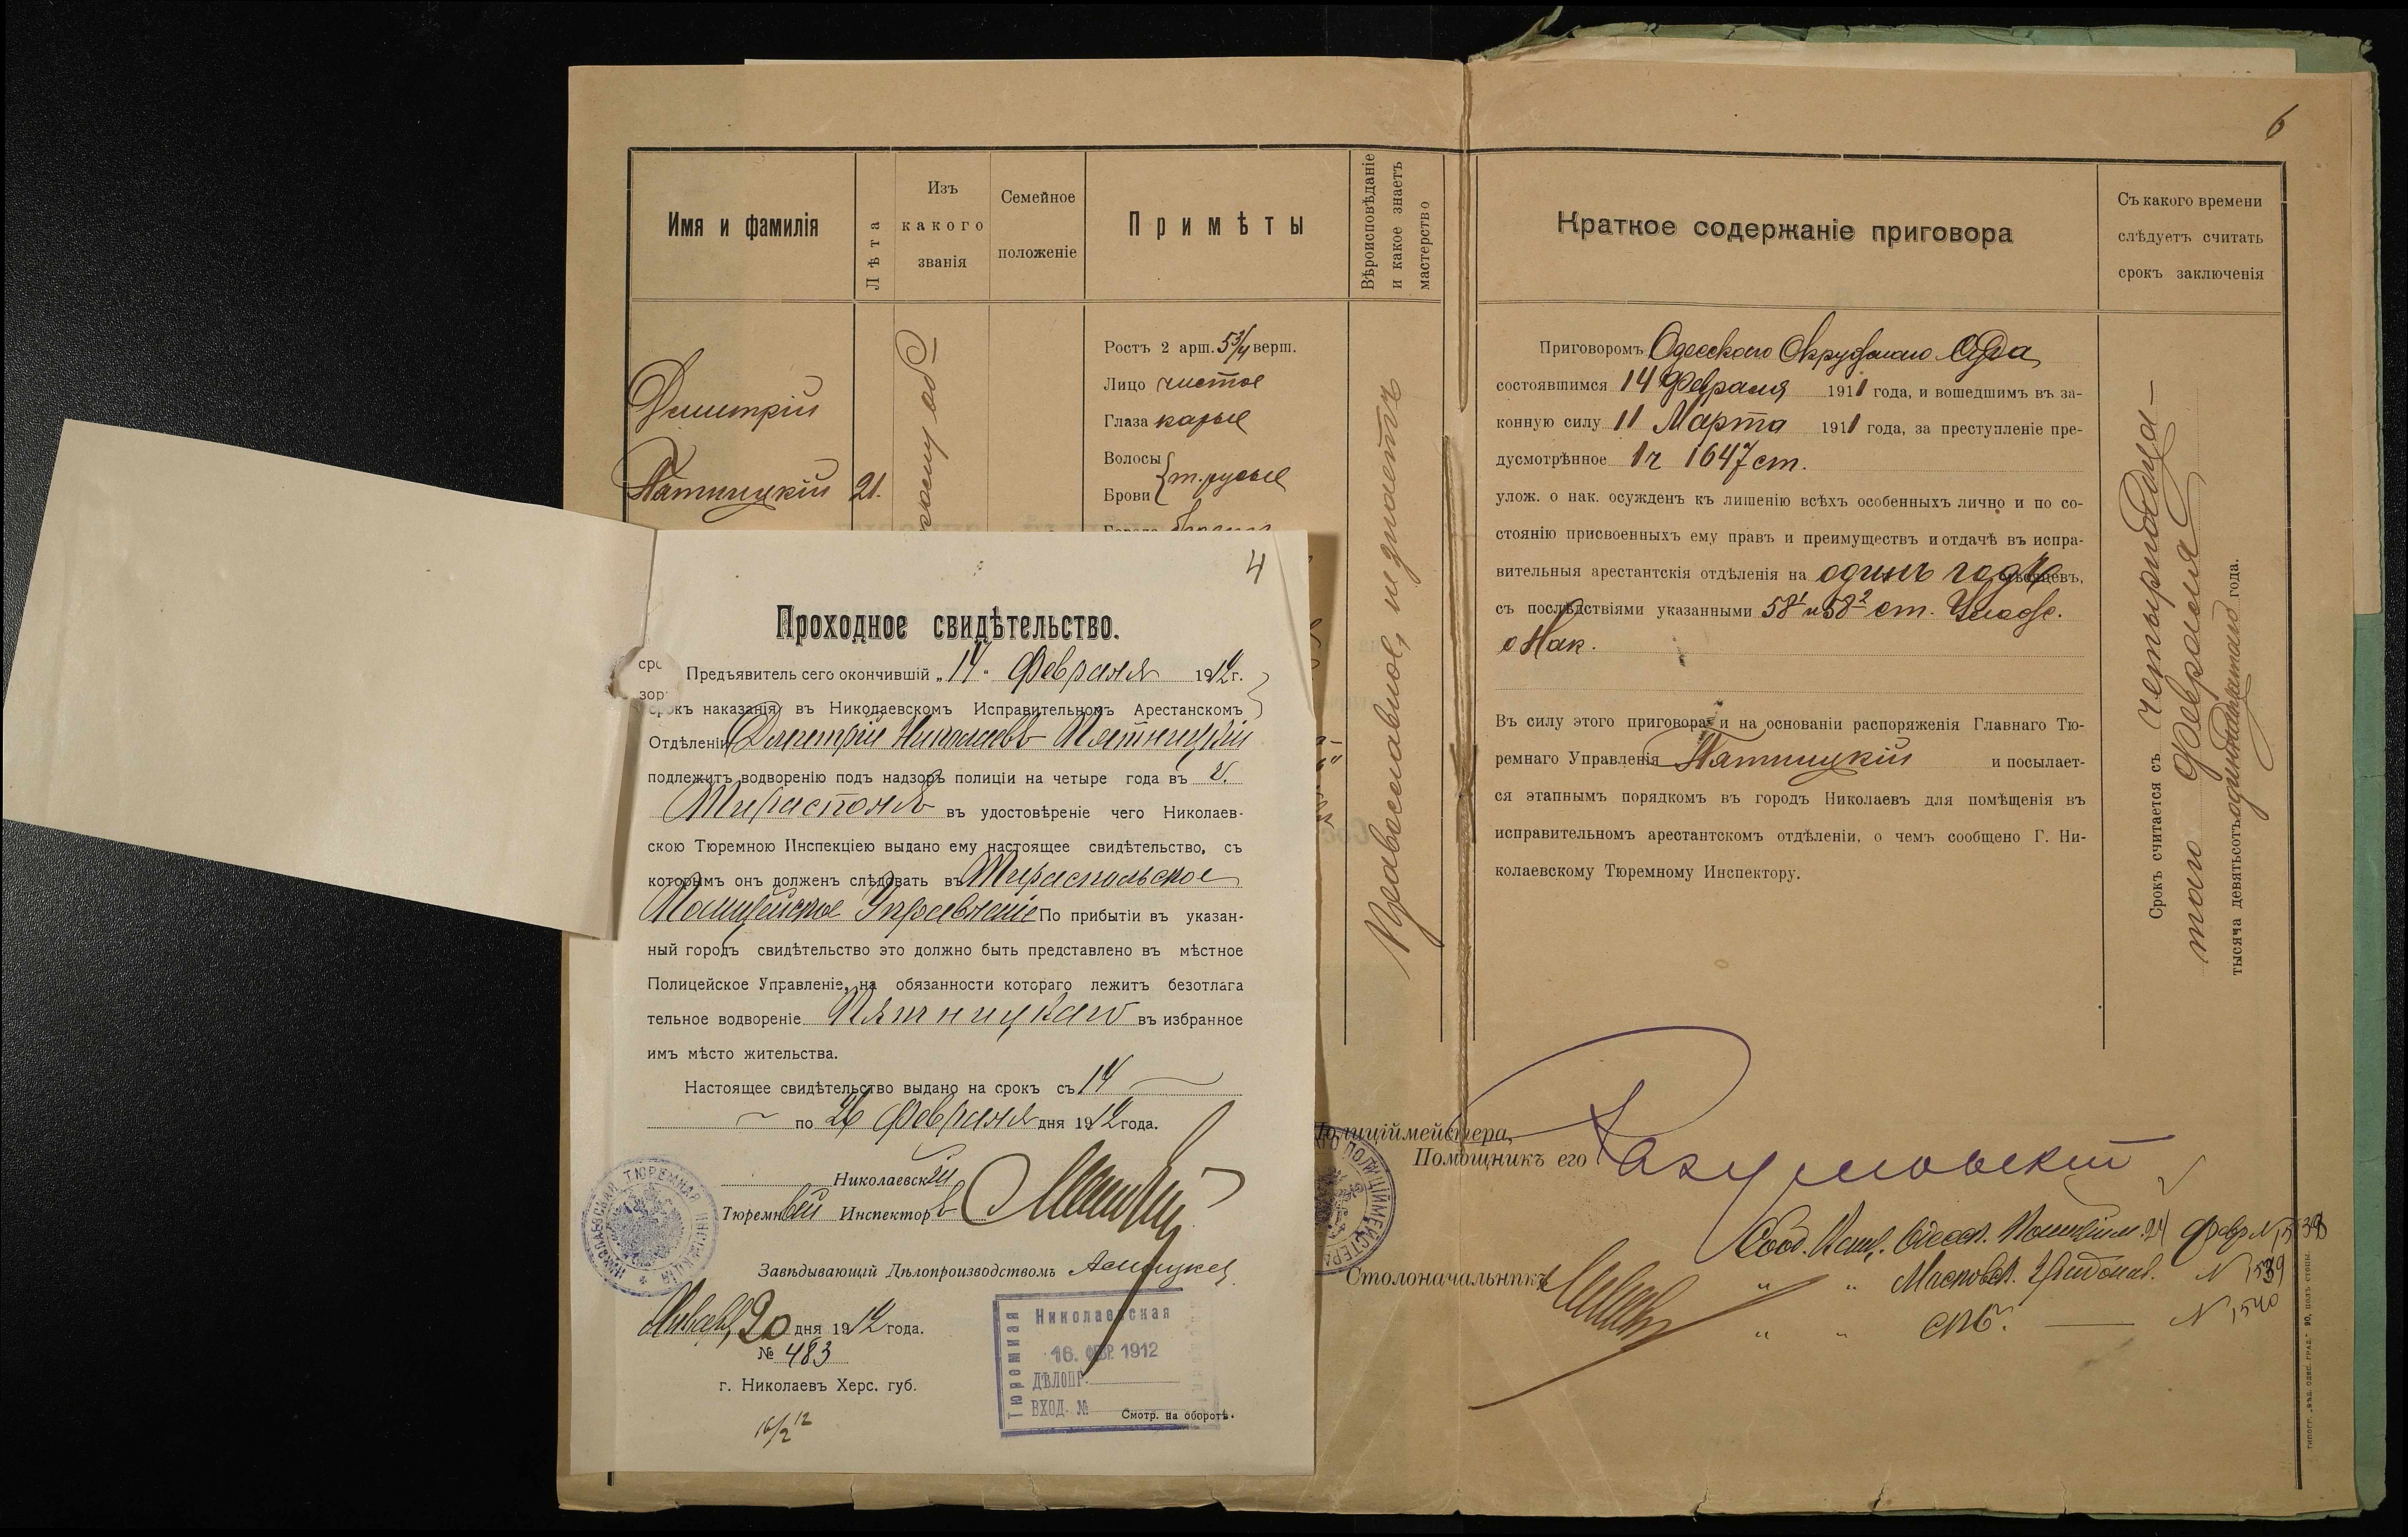 6
Имя и фамилія
Лѣта
Изъ
какого
званія
Семейное
положеніе
Примѣты
Вѣроисповѣданіе
и какое знаетъ
мастерство
Димитрій
Пятницкій
21.
Ростъ 2 арш. 5 3/4 верш.
Лицо чистое
Глаза карые
Волосы
Брови
т. русые
Православное, не знаетъ
Краткое содержаніе приговора
Съ какого времени
слѣдуетъ считать
срокъ заключенія
Приговоромъ Одесскаго Окружнаго Суда
состоявшимся 14 Февраля 1911 года, и вошедшимъ въ за-
конную силу 11 Марта 1911 года, за преступленіе пре-
дусмотрѣнное 1 ч 1647 ст.
улож. о нак. осужденъ къ лишенію всѣхъ особенныхъ лично и по со-
стоянію присвоенныхъ ему правъ и преимуществъ и отдачѣ въ испра-
вительныя арестантскія отдѣленія на одинъ годъ мѣсяцевъ,
съ послѣдствіями указанными 58¹ и 58² ст. Улож.
о Нак.
Въ силу этого приговора и на основаніи распоряженія Главнаго Тю-
ремнаго Управленія Пятницкій и посылает-
ся этапнымъ порядкомъ въ городъ Николаевъ для помѣщенія въ
исправительномъ арестантскомъ отдѣленіи, о чемъ сообщено Г. Ни-
колаевскому Тюремному Инспектору.
Срокъ считается съ четырнадца-
таго февраля
тысяча девятьсотъ одиннадцатаго года.
Полиціймейстера,
Помощникъ его
Столоначальникъ
Сооб. Одесск. Полиційм. 24 февр N 1538
" " Московск. N 1539
" " СПб. — N 1540
4
Проходное свидѣтельство.
Предъявитель сего окончившій „14" Февраля 1912 г.
срокъ наказанія въ Николаевскомъ Исправительномъ Арестанскомъ
Отдѣленіи Димитрій Николаевъ Пятницкій
подлежитъ водворенію подъ надзоръ полиціи на четыре года въ г.
Тирасполь въ удостовѣреніе чего Николаев-
скою Тюремною Инспекціею выдано ему настоящее свидѣтельство, съ
которымъ онъ долженъ слѣдовать въ Тираспольское
Полицейское Управленіе По прибытіи въ указан-
ный городъ свидѣтельство это должно быть представлено въ мѣстное
Полицейское Управленіе, на обязанности котораго лежитъ безотлага
тельное водвореніе Пятницкаго въ избранное
имъ мѣсто жительства.
Настоящее свидѣтельство выдано на срокъ съ 14
по 26 Февраля дня 1912 года.
Николаевскій
Тюремный Инспекторъ
Завѣдывающій Дѣлопроизводствомъ
НИКОЛАЕВСКАЯ ТЮРЕМНАЯ ИНСПЕКЦІЯ
Января 20 дня 1912 года.
№ 483
г. Николаевъ Херс. губ.
16/2 12
Николаевская
Тюремная
16. ФЕВР. 1912
ДѢЛОПР.
ВХОД. №
Смотр. на оборотѣ.